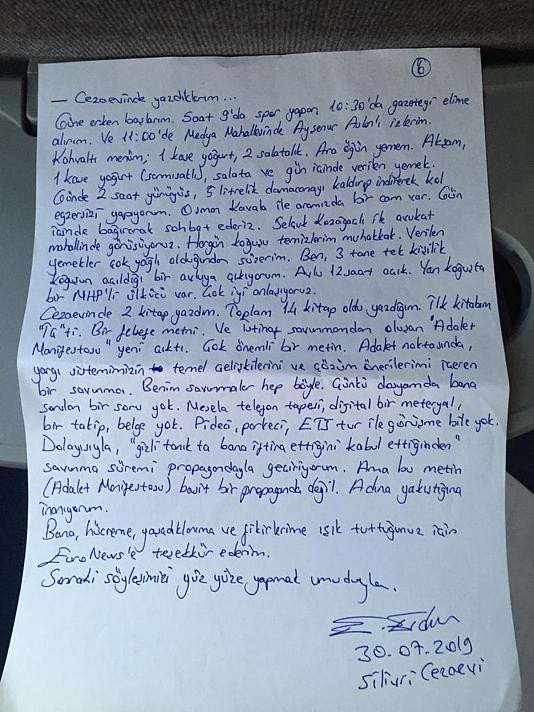 6
— Cezaevinde yazdıklarım...
Güne erken başlarım. Saat 9'da spor yapar, 10:30'da gazeteyi elime
alırım. Ve 11:00'de Medya Mahallesinde Ayşenur Aslan'ı izlerim.
Kahvaltı menüm; 1 kase yoğurt, 2 salatalık. Ara öğün yemem. Akşam,
1 kase yoğurt (sarmısaklı), salata ve gün içinde verilen yemek.
Günde 2 saat yürüyüş, 5 litrelik damacanayı kaldırıp indirerek kol
egzersizi yapıyorum. Osman Kavala ile aramızda bir cam var. Gün
içinde bağırarak sohbet ederiz. Selçuk Kozağaçlı ile avukat
mahallinde görüşüyoruz. Hergün koğuşu temizlerim muhakkak. Verilen
yemekler çok yağlı olduğundan süzerim. Ben, 3 tane tek kişilik
koğuşun açıldığı bir avluya çıkıyorum. Avlu 12 saat açık. Yan koğuşta
bir MHP'li ülkücü var. Çok iyi anlaşıyoruz.
Cezaevinde 2 kitap yazdım. Toplam 14 kitap oldu yazdığım. İlk kitabım
Bir felsefe metni. Ve istinaf savunmamdan oluşan "Adalet
Manifestosu" yeni çıktı. Çok önemli bir metin. Adalet noktasında,
yargı sistemimizin temel çelişkilerini ve çözüm önerilerimi içeren
bir savunma. Benim savunmalar hep böyle. Çünkü dosyamda bana
sorulan bir soru yok. Mesela telefon tapesi, dijital bir meteryal,
bir takip, belge yok. Pideci, parkeci, ETS tur ile görüşme bile yok.
Dolayısıyla, "gizli tanık ta bana iftira ettiğini kabul ettiğinden"
savunma süremi propagandayla geçiriyorum. Ama bu metin
(Adalet Manifestosu) basit bir propaganda değil. Adına yakıştığına
inanıyorum.
Bana, hücreme, yazdıklarıma ve fikirlerime ışık tuttuğunuz için
EuroNews'e teşekkür ederim.
Sonraki söyleşimizi yüz yüze yapmak umuduyla.
30.07.2019
Silivri Cezaevi